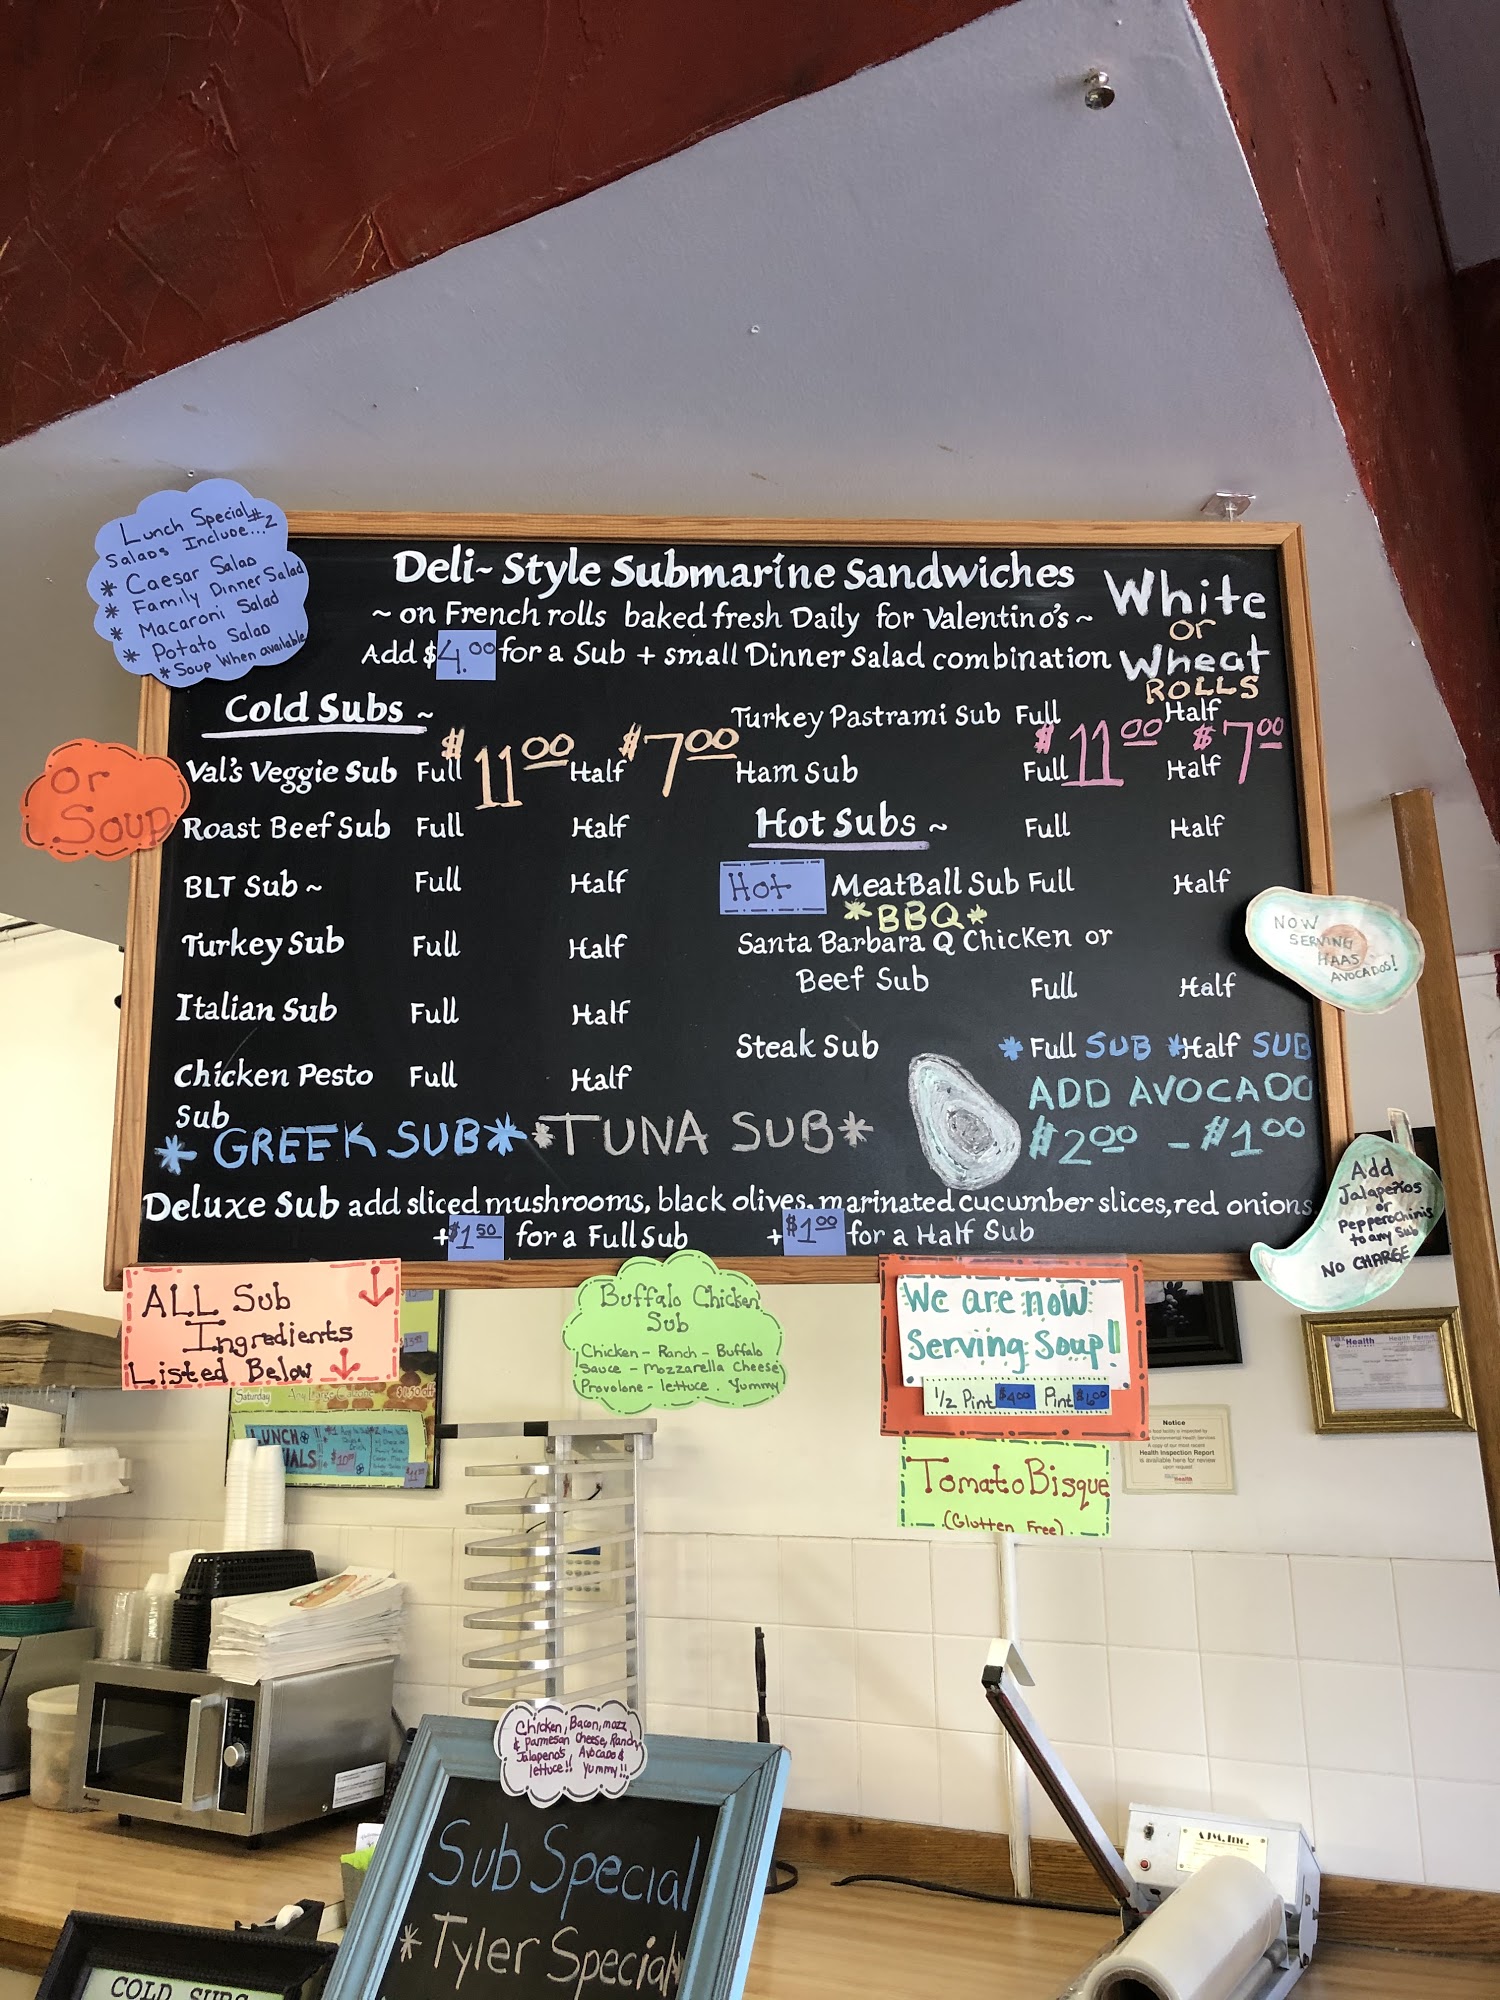 Lunch Special #2
Salads Include...
* Caesar Salad
* Family Dinner Salad
* Macaroni Salad
* Potato Salad
* Soup When available
Or
Soup
Deli-Style Submarine Sandwiches
~ on French rolls baked fresh Daily for Valentino's ~
Add $4.00 for a Sub + small Dinner Salad combination
White
or
Wheat
ROLLS
Cold Subs ~
Val's Veggie Sub Full $11.00 Half $7.00
Roast Beef Sub Full Half
BLT Sub ~ Full Half
Turkey Sub Full Half
Italian Sub Full Half
Chicken Pesto Full Half
Sub
* GREEK SUB * * TUNA SUB *
Turkey Pastrami Sub Full Half
Ham Sub Full $11.00 Half $7.00
Hot Subs ~ Full Half
Hot MeatBall Sub Full Half
*BBQ*
Santa Barbara Q Chicken or
Beef Sub Full Half
Steak Sub * Full SUB * Half SUB
ADD AVOCADO
$2.00 - $1.00
Deluxe Sub add sliced mushrooms, black olives, marinated cucumber slices, red onions
+$1.50 for a Full Sub +$1.00 for a Half Sub
NOW
SERVING
HAAS
AVOCADOS!
Add
Jalapeños
or
PepperoChinis
to any Sub
NO CHARGE
ALL Sub
Ingredients
Listed Below
Buffalo Chicken
Sub
Chicken - Ranch - Buffalo
Sauce - Mozzarella Cheese
Provolone - lettuce. Yummy
We are now
Serving Soup!!
1/2 Pint $4.00 Pint $6.00
Tomato Bisque
(Glutten Free)
Saturday
LUNCH
Health
Notice
Health Inspection Report
is available for review
upon request
Chicken, Bacon, mozz
& Parmesan Cheese, Ranch,
Jalapeno's, Avocado &
lettuce!! Yummy!!
Sub Special
* Tyler Special
AJM, Inc.
COLD SUBS